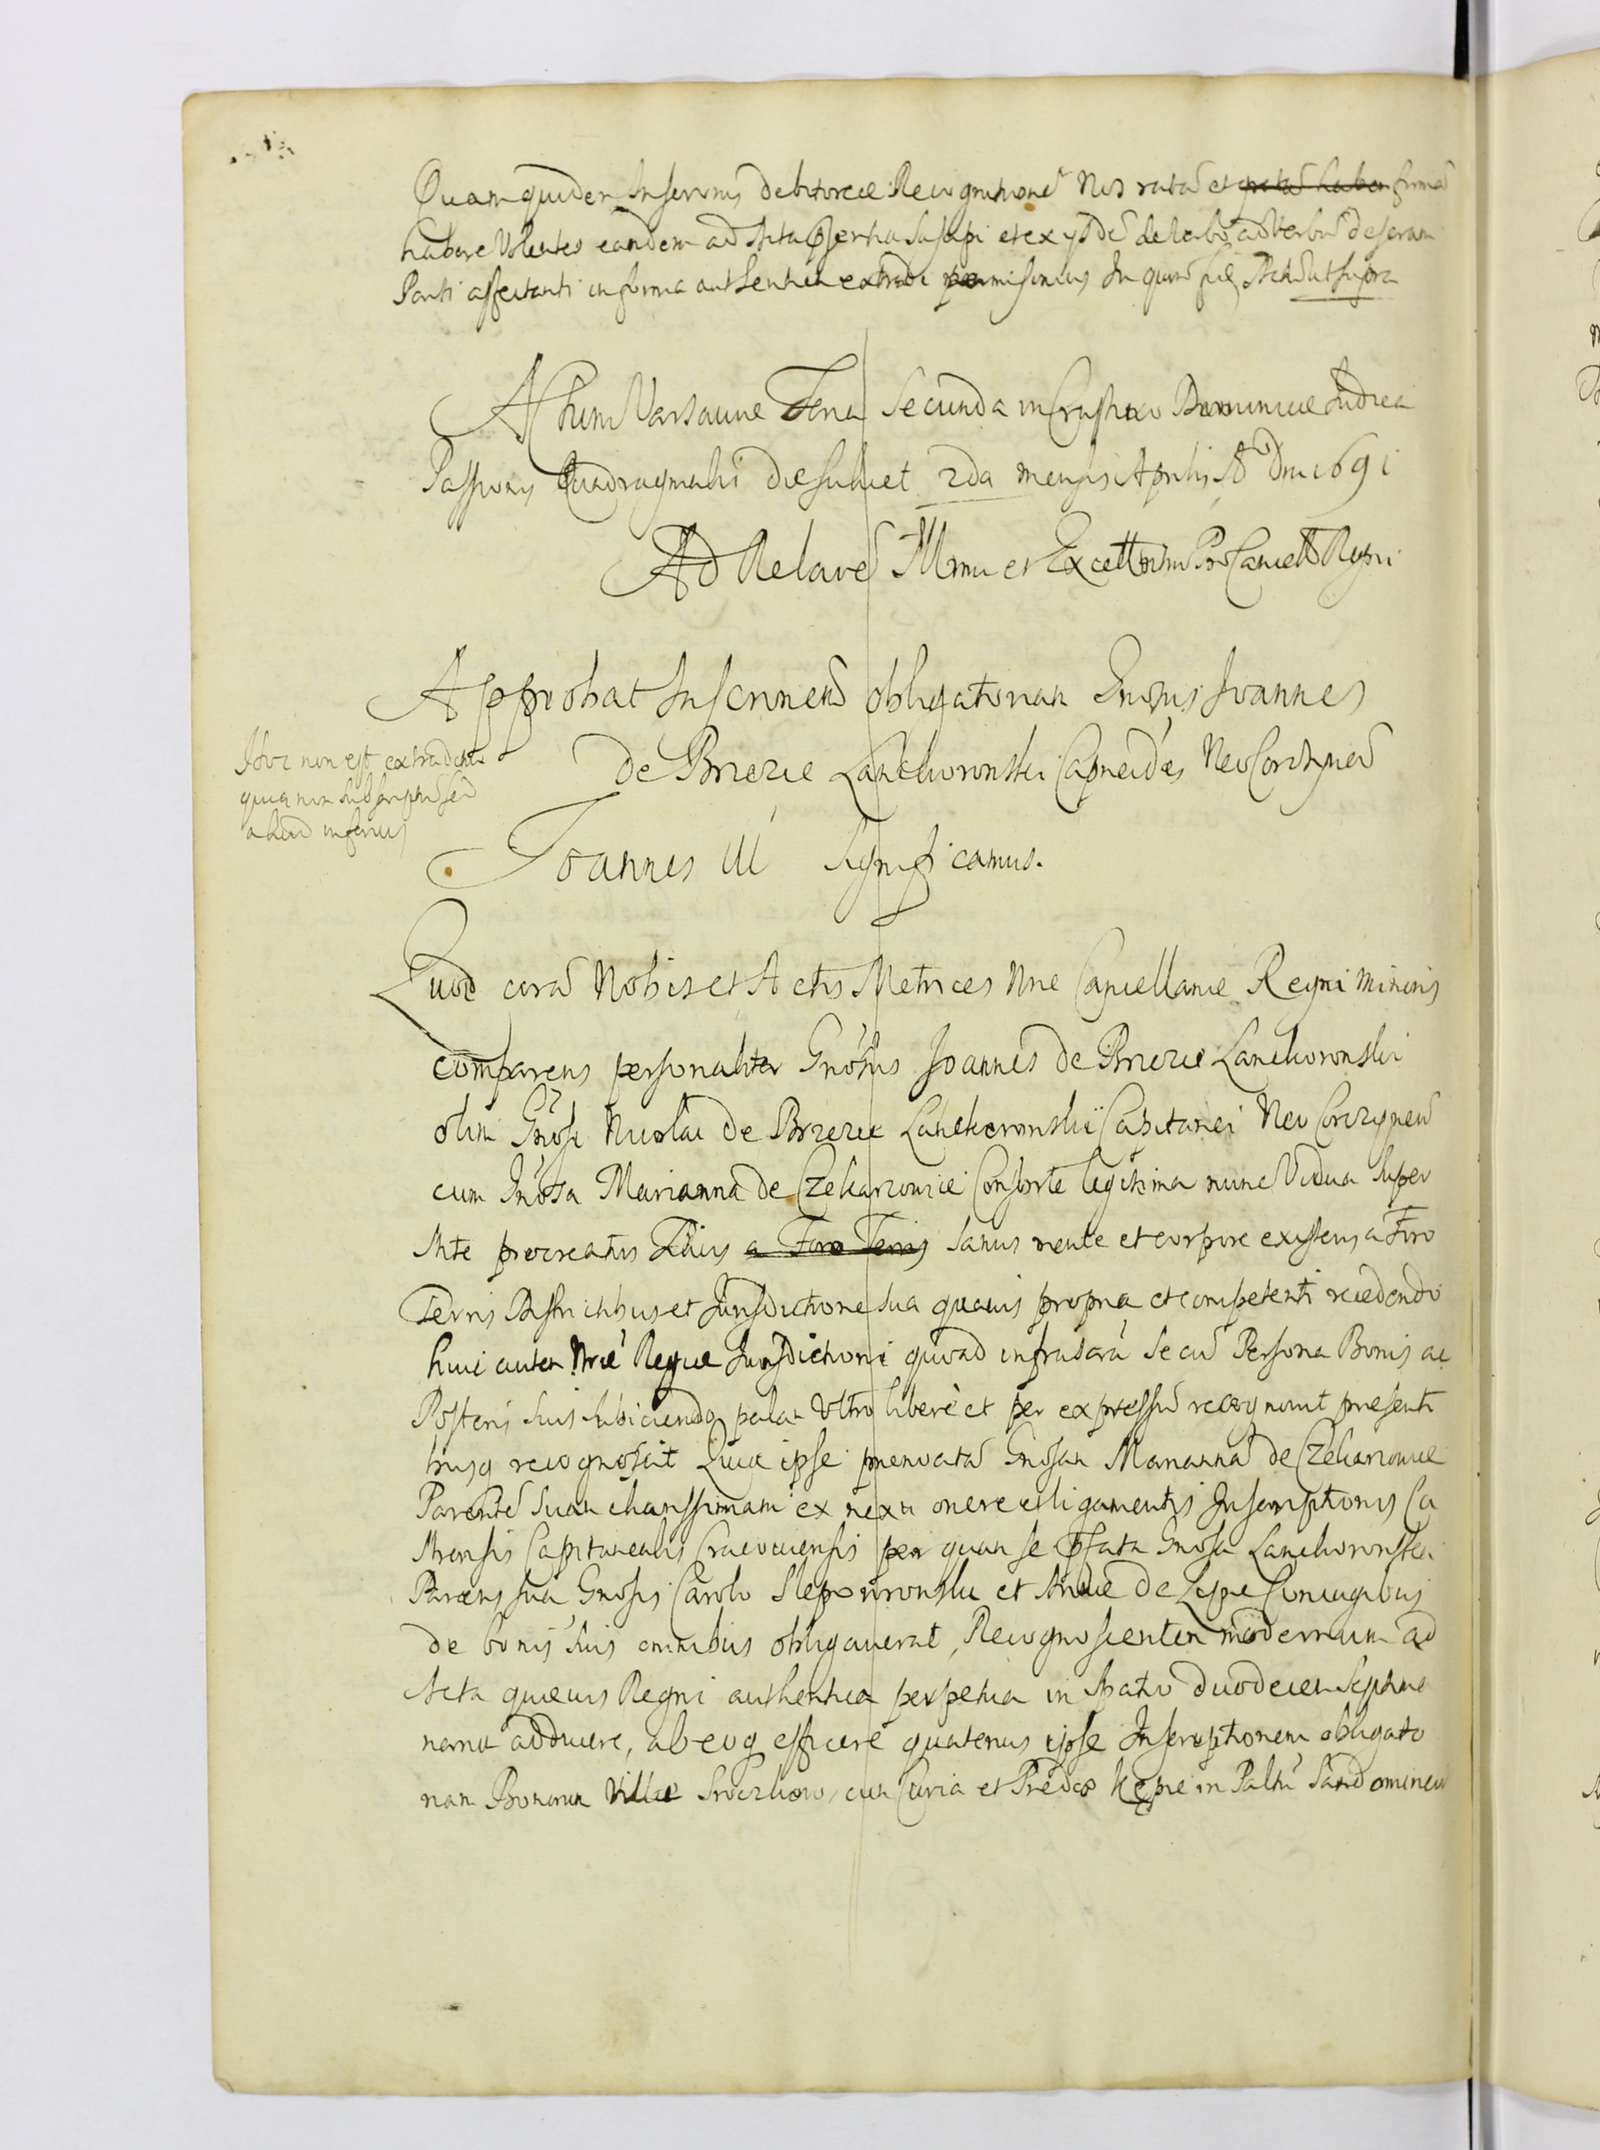 Quam quidem Inscronis debitoriae Recognitione Nos rata et grata haben firma
habere Volentes eandem ad Acta psentia suscipi et ex ysde de verbo ad verbu descrm
Parti affectanti in forma authentica extradi permisimus In quor fid Actu ut supra
Actum Varsaviae Feria Secunda in Crastino Dominicae Judica
Passionis Quadragesimalis die scilicet 2da mensis Aprilis Ao Dni 1691
Ad Relaoe Illmi et Excellmi ProCancell Regni
Approbat Inscrionem obligatoriam Gnosus Joannes
de Brzezie Lanckoronski Capneides NeoCorczynen
Ibi non est extradita
quia non subscripta sed
aliud inferius
Joannes III Significamus.
Quod cora Nobis et Actis Metrices Nrae Cancellariae Regni Minoris
comparens personaliter Gnosus Joannes de Brzezie Lanckoronski
olim Gnosi Nicolai de Brzezie Lanckoronski Capitanei Neo Corczynen
cum Gnosa Marianna de Czekarzowice Consorte legitima nunc Vidua super
stite procreatus Filius a Foro Terris sanus mente et corpore existens a Foro
Terris Districtibus et Jurisdictione sua quavis propria et competenti recedendo
huic autem Nrae Regiae Jurisdictioni quoad infrascra se cu Persona Bonis ac
Posteris suis subiiciendo palam Ultro libere et per expressu recognovit presenti
busq recognoscit Quia ipse prenocata Gnosam Marianna de Czekarzowice
Parente suam charissimam ex nexu onere et ligamentis Inscriptionis Ca
strensis Capitanealis Cracoviensis per quam se pfata Gnosa Lanckoronska
Parens sua Gnosis Carolo Slepowronski et Annae de Lipie Coniugibus
de bonis suis omnibus obligaverat, Recognoscentem modernum ad
Acta quaevis Regni authentica perpetua in spatio duodecem septima
narum adducere, ab eoq efficere quatenus ipse Inscriptionem obligato
riam Bonorum Villae cum Curia et Prędio Kępie in Paltu Sandomirien